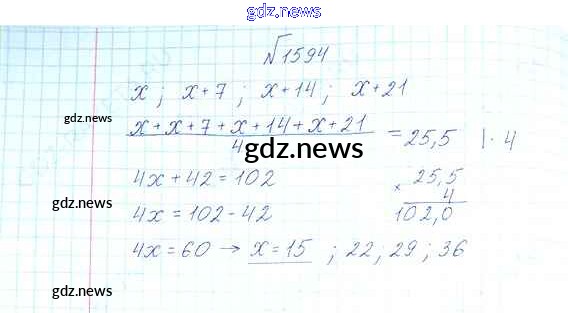 gdz.news
№1594
x ; x+7 ; x+14 ; x+21
gdz.news
x+x+7+x+14+x+21
4
= 25,5 |·4
gdz.news
4x+42=102
25,5
×
4
102,0
gdz.news
4x=102-42
4x=60 → x=15 ; 22; 29; 36
gdz.news
gdz.news